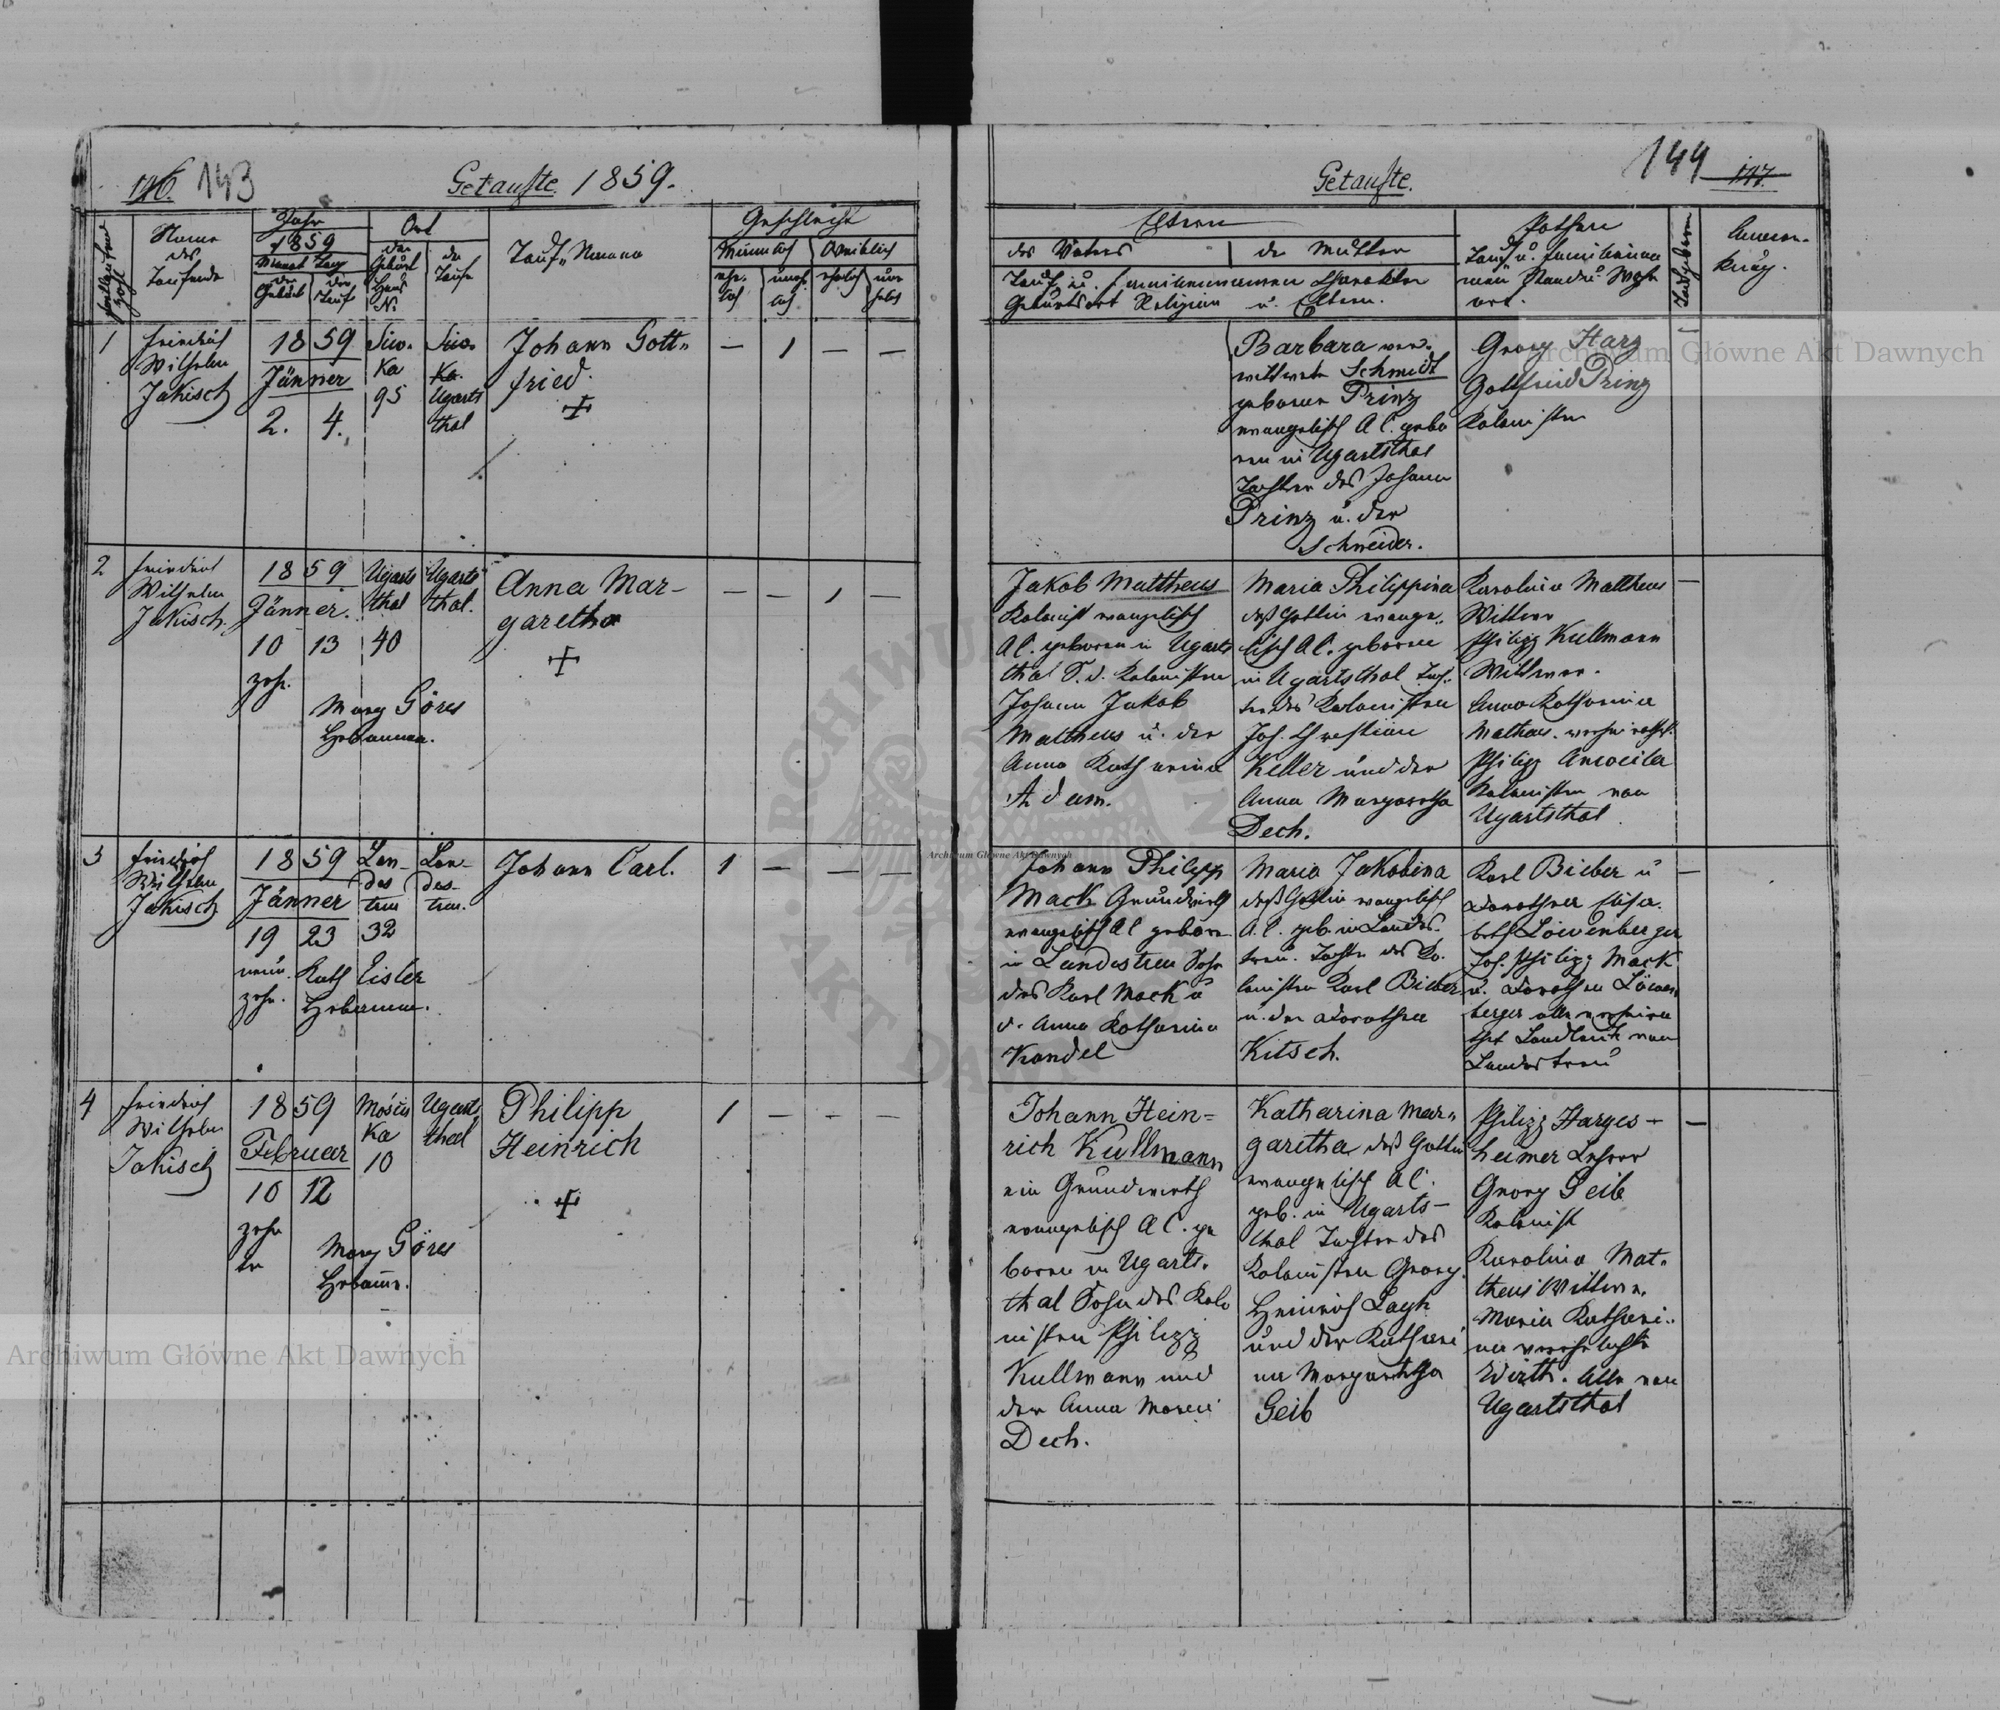 146. 143
Getaufte 1859.
Fortlaufende Zahl
Name
des
Taufenden
Jahr
1859
Monat Tag
der Geburt
der Taufe
Ort
der
Geburt
Haus
N:
der
Taufe
Tauf-Name
Geschlecht
Männlich
Weiblich
ehe-
lich
unehe-
lich
ehelich
1
Friedrich
Wilhelm
Jakisch
1859
Jänner
2. 4.
Siw-
ka
95
Siw-
ka
Ugarts
thal
Johann Gott-
fried.
— 1 — —
2
Friedrich
Wilhelm
Jakisch
1859
Jänner.
10 13
zehn.
Ugarts
thal
40
Ugarts
thal.
Marg Göres
Hebamme.
Anna Mar-
garetha
— — 1 —
3
Friedrich
Wilhelm
Jakisch
1859
Jänner
19 23
neun
zehn.
Lan-
des
treu
32
Lan-
des-
treu.
Kath Eisler
Hebamme.
Johann Carl.
1 — — —
4
Friedrich
Wilhelm
Jakisch
1859
Februar
10 12
zehn
Mościs
ka
10
Ugarts
thal
Marg Göres
Hebamme.
Philipp
Heinrich
1 — — —
Getaufte.
144 147.
Eltern
des Vaters
der Mutter
Tauf u. Familiennamen Charakter
Geburtsort Religion u. Eltern.
Pathen
Tauf u. Familienna
men Stand u. Wohn
ort.
Anmer-
kung.
Barbara ver-
wittwete Schmidt
geborne Prinz
evangelisch A C. gebo
ren in Ugartsthal
Tochter des Johann
Prinz u. der
Schneider.
Georg Harz
Gottfried Prinz
Kolonisten
Jakob Mattheus
Kolonist evangelisch
A C. geboren in Ugarts
thal S. d. Kolonisten
Johann Jakob
Mattheus u. der
Anna Katharina
Adam.
Maria Philippina
deß Gattin evange-
lisch A C. geboren
in Ugartsthal Toch-
ter des Kolonisten
Joh. Christian
Keller und der
Anna Margaretha
Dech.
Karolina Mattheus
Wittwe
Philipp Kullmann
Wittwer.
Anna Katharina
Philipp Anweiler
Kolonisten von
Ugartsthal
Johann Philipp
Mack Grundwirth
evangelisch A C geboren
in Landestreu Sohn
des Karl Mack u
d. Anna Katharina
Kandel
Maria Jakobina
deß Gattin evangelisch
A. C. geb. in Landes-
treu. Tochter des Ko-
lonisten Karl Bieber
u. der Dorothea
Kitsch.
Karl Bieber u
Dorothea Elisa-
beth Löwenberger
Joh. Philipp Mack
u. Dorothea Löwen
berger alle verheira
thet Landleute von
Landestreu
Johann Hein-
rich Kullmann
ein Grundwirth
evangelisch A C. ge
boren in Ugarts-
thal Sohn des Kolo
nisten Philipp
Kullmann und
der Anna Maria
Dech.
Katharina Mar-
garetha deß Gattin
evangelisch A C.
geb. in Ugarts-
thal Tochter des
Kolonisten Georg
Heinrich
und der Kathari
na Margaretha
Geib
Philipp Harges-
heimer Lehrer
Georg Geib
Kolonist
Karolina Mat-
theus Wittwe.
Maria Kathari-
na verehelichte
Wirth. Alle von
Ugartsthal
Archiwum Główne Akt Dawnych
Archiwum Główne Akt Dawnych
Archiwum Główne Akt Dawnych